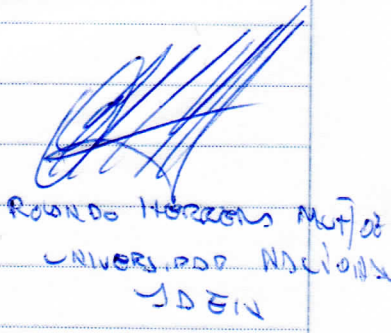 ROLANDO HERRERA MUÑOZ
UNIVERSIDAD NACIONAL
IDEIN